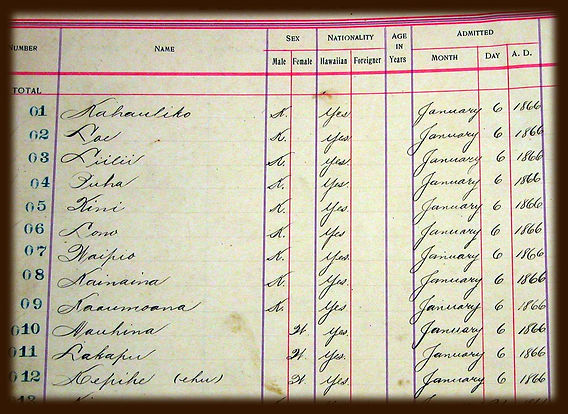 NUMBER NAME SEX NATIONALITY AGE IN YEARS ADMITTED
Male Female Hawaiian Foreigner MONTH DAY A. D.
TOTAL
01 Kahauliko Yes January 6 1866
02 Loe Yes January 6 1866
03 Liilii Yes January 6 1866
04 Puha Yes January 6 1866
05 Kini Yes January 6 1866
06 Lono Yes January 6 1866
07 Waipio Yes January 6 1866
08 Kainaina Yes January 6 1866
09 Kaaumoana Yes January 6 1866
010 Nauhina Yes January 6 1866
011 Lakapu Yes January 6 1866
012 Kepihe (ehu) Yes January 6 1866